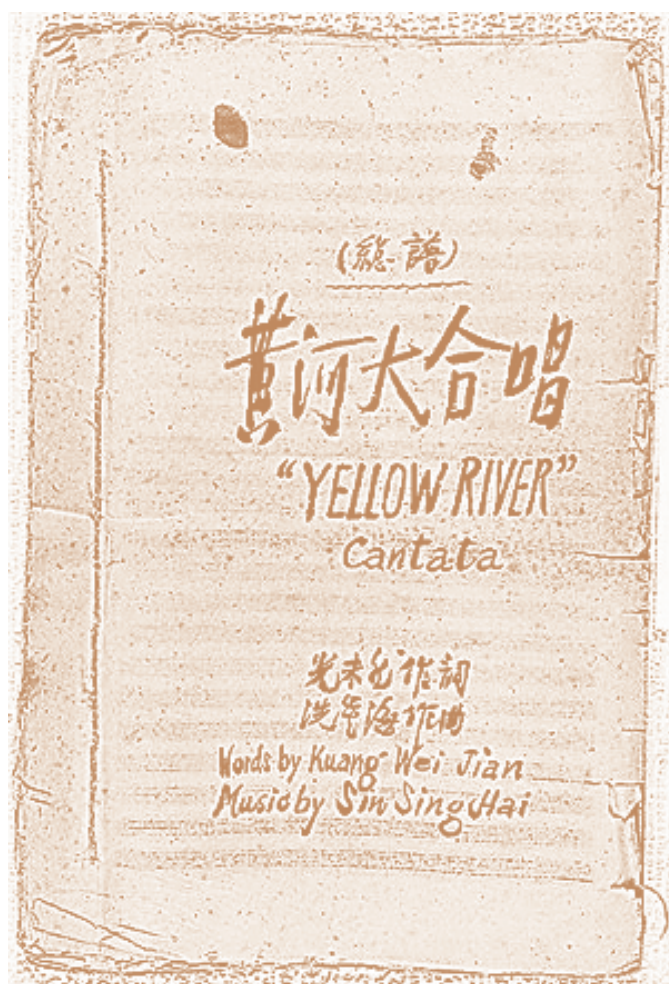 (總譜)
黃河大合唱
“YELLOW RIVER”
Cantata
光未然作詞
洗星海作曲
Words by Kuang Wei Jian
Music by Sin Sing Hai